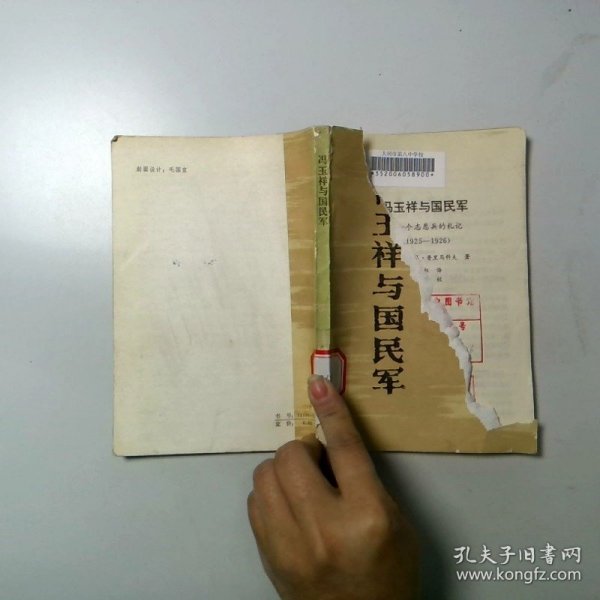 封面设计：毛国宣
书号：11190
定价：
冯玉祥与国民军
玉祥与国民军
大同市第六中学校
*352006058900*
冯玉祥与国民军
个志愿兵的札记
1925—1926)
普里马科夫 著
图书
号
孔夫子旧书网
www.kongfz.com